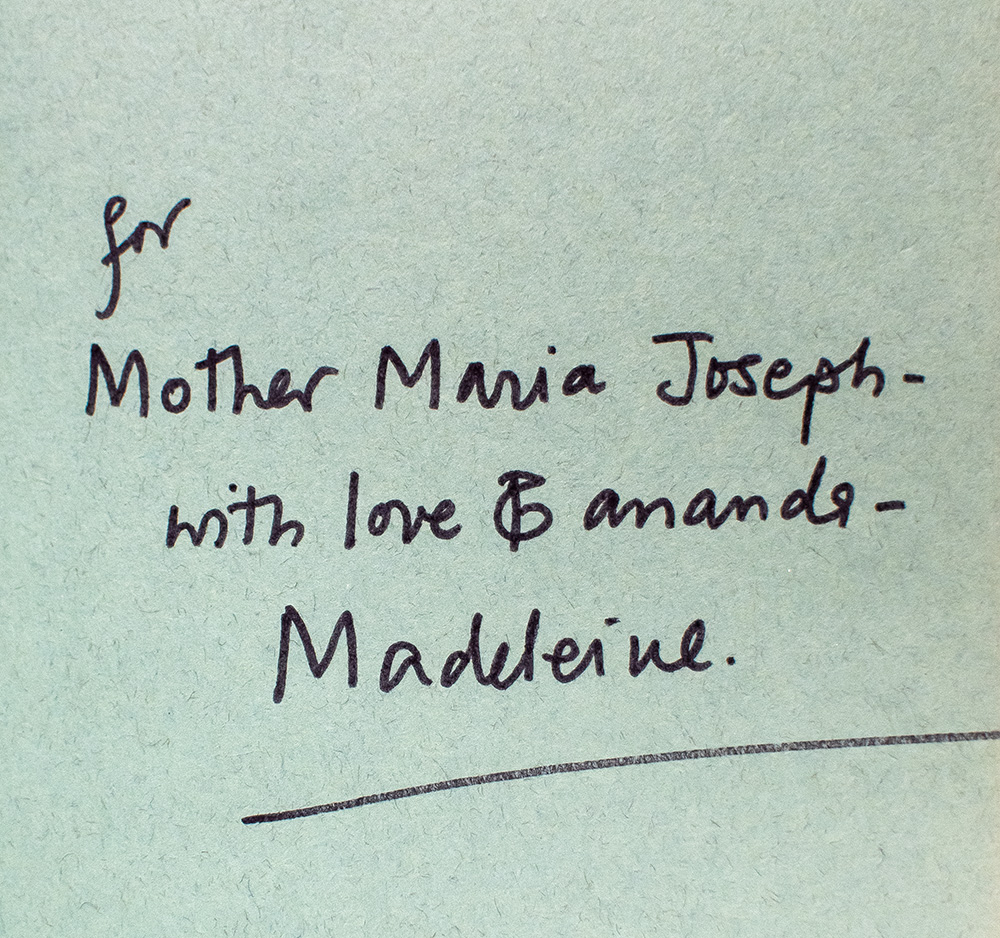 for
Mother Maria Joseph-
with love & ananda-
Madeleine.